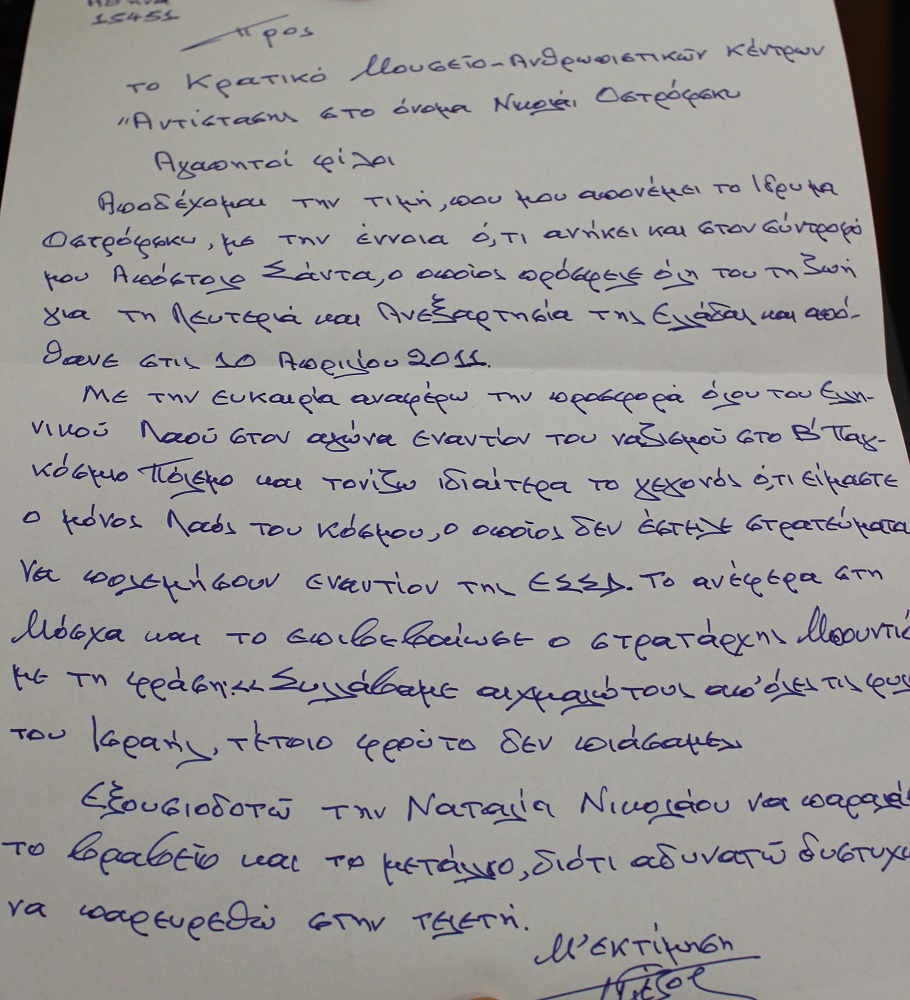 15451
Προς
το Κρατικό Μουσείο-Ανθρωπιστικών Κέντρων
"Αντίστασης στο όνομα Νικολάι Οστρόφσκυ
Αγαπητοί φίλοι
Αποδέχομαι την τιμή, που μου απονέμει το Ιδρυμα
Οστρόφσκυ, με την έννοια ό,τι ανήκει και στον σύντροφό
μου Απόστολο Σάντα, ο οποίος πρόσφερε όλη του τη ζωή
για τη Λευτεριά και Ανεξαρτησία της Ελλάδας και από-
θανε στις 10 Απριλίου 2011.
Με την ευκαιρία αναφέρω την προσφορά όλου του Ελλη-
νικού Λαού στον αγώνα εναντίον του ναζισμού στο Β' Παγ-
κόσμιο Πόλεμο και τονίζω ιδιαίτερα το γεγονός ό,τι είμαστε
ο μόνος Λαός του κόσμου, ο οποίος δεν έστειλε στρατεύματα
να πολεμήσουν εναντίον της ΕΣΣΔ. Το ανέφερα στη
Μόσχα και το επιβεβαίωσε ο στρατάρχης Μπουντιό
με τη φράση: «Συλλάβαμε αιχμαλώτους απ' όλες τις φυλ
του Ισραήλ, τέτοιο φρούτο δεν πιάσαμε»
Εξουσιοδοτώ την Ναταλία Νικολάου να παραλά
το βραβείο και το μετάλλιο, διότι αδυνατώ δυστυχώ
να παρευρεθώ στην τελετή.
Μ' εκτίμηση